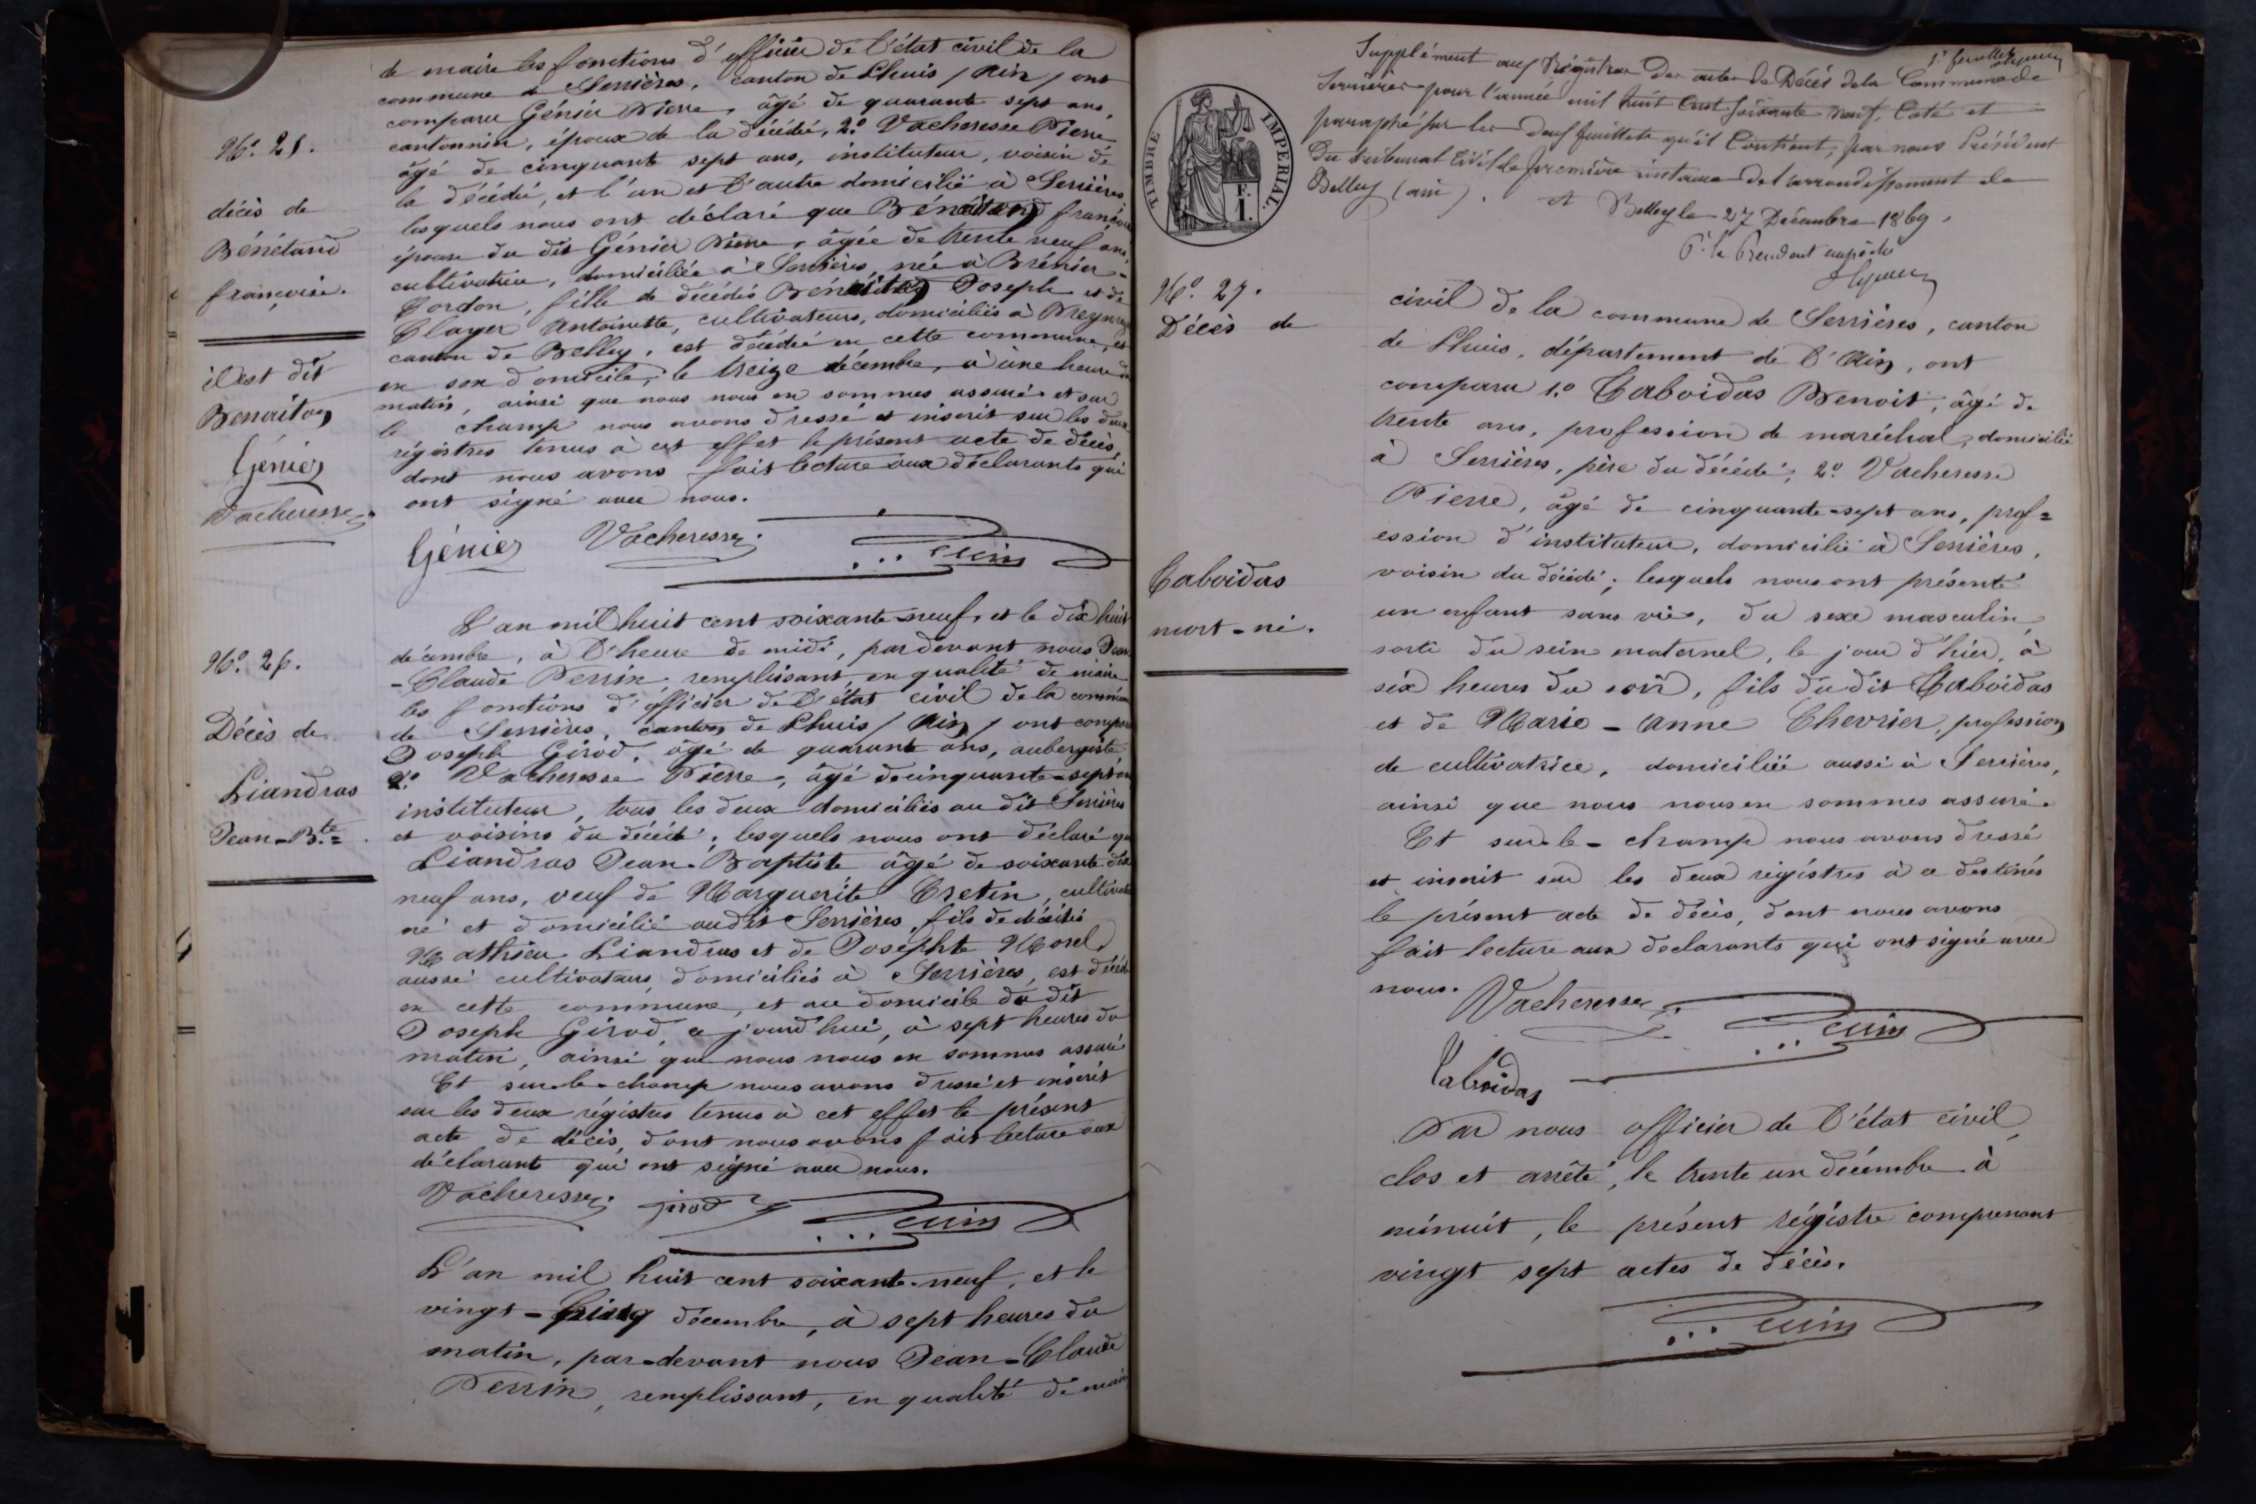 de maire les fonctions d'officier de l'état civil de la
commune de Serrières, canton de Lhuis / Ain / ont
comparu Génier Pierre, âgé de quarante sept ans,
cantonnier, époux de la décédée, 2.° Vacheresse Pierre
âgé de cinquante sept ans, instituteur, voisin de
la décédée, et l'un et l'autre domicilié à Serrières,
lesquels nous ont déclaré que
épouse du dit Génier Pierre, âgée de trente neuf ans,
cultivatrice, domiciliée à Serrières, née à Brénier-
Cordon, fille de décédés Joseph et de
Clayer Antoinette, cultivateurs, domiciliés à
canton de Belley, est décédée en cette commune, et
en son domicile, le treize décembre, à une heure du
matin, ainsi que nous nous en sommes assuré et sur
le champ nous avons dressé et inscrit sur les deux
régistres tenus à cet effet le présent acte de décès,
dont nous avons fait lecture aux déclarants qui
ont signé avec nous.
Génier Vacheresse Perrin
N.° 25.
décès de
Bénétand
françoise.
il est dit
Benaiton
Génier
Vacheresse
N.° 26.
Décès de
Liandras
Jean-B.te
L'an mil huit cent soixante-neuf, et le dix huit
décembre, à l'heure de midi, pardevant nous Jean
-Claude Perrin, remplissant, en qualité de maire
les fonctions d'officier de l'état civil de la commune
de Serrières, canton de Lhuis / Ain / ont comparu
Joseph Girod, âgé de quarante ans, aubergiste
2.° Vacheresse Pierre, âgé de cinquante-sept ans
instituteur, tous les deux domiciliés au dit Serrières
et voisins du décédé; lesquels nous ont déclaré que
Liandras Jean-Baptiste âgé de soixante dix
neuf ans, veuf de Marguerite Cretin, cultivateur
né et domicilié audit Serrières, fils de décédés
Mathieu Liandras et de Josephte Morel
aussi cultivateurs domiciliés à Serrières, est décédé
en cette commune, et au domicile du dit
Joseph Girod, ce jourd'hui, à sept heures du
matin, ainsi que nous nous en sommes assuré
Et sur-le-champ nous avons dressé et inscrit
sur les deux régistres tenus à cet effet le présent
acte de décès, dont nous avons fait lecture aux
déclarant qui ont signé avec nous.
Vacheresse girod Perrin
L'an mil huit cent soixante-neuf, et le
vingt-cinq décembre, à sept heures du
matin, par-devant nous Jean-Claude
Perrin, remplissant, en qualité de maire
TIMBRE IMPERIAL.
F. I.
1er feuillet
Supplément aux Régistres des actes de Décés de la Commune de
Serrières pour l'année mil huit Cent soixante neuf. Coté et
paraphé sur les deux feuillets qu'il Contient, par nous Président
du tribunal Civil de première instance de l'arrondissement de
Belley (ain).
A Belley le 27 Décembre 1869.
P. le President empêché
N.° 27.
Décès de
Caboidas
mort-né.
civil de la commune de Serrières, canton
de Lhuis, département de l'Ain, ont
comparu 1.° Caboidas Benoit, âgé de
trente ans, profession de maréchal, domicilié
à Serrières, père du décédé; 2.° Vacheresse
Pierre, âgé de cinquante-sept ans, prof=
ession d'instituteur, domicilié à Serrières,
voisin du décédé; lesquels nous ont présenté
un enfant sans vie, du sexe masculin,
sorti du sein maternel, le jour d'hier, à
six heures du soir, fils du dit Caboidas
et de Marie-Anne Chevrier, profession
de cultivatrice, domiciliée aussi à Serrières,
ainsi que nous nous en sommes assuré.
Et sur-le-champ nous avons dressé
et inscrit sur les deux régistres à ce destinés
le présent acte de décès, dont nous avons
fait lecture aux declarants qui ont signé avec
nous.
Vacheresse Perrin
Caboidas
Par nous officier de l'état civil,
clos et arrêté, le trente un décembre à
minuit, le présent régistre comprenant
vingt sept actes de décès.
Perrin